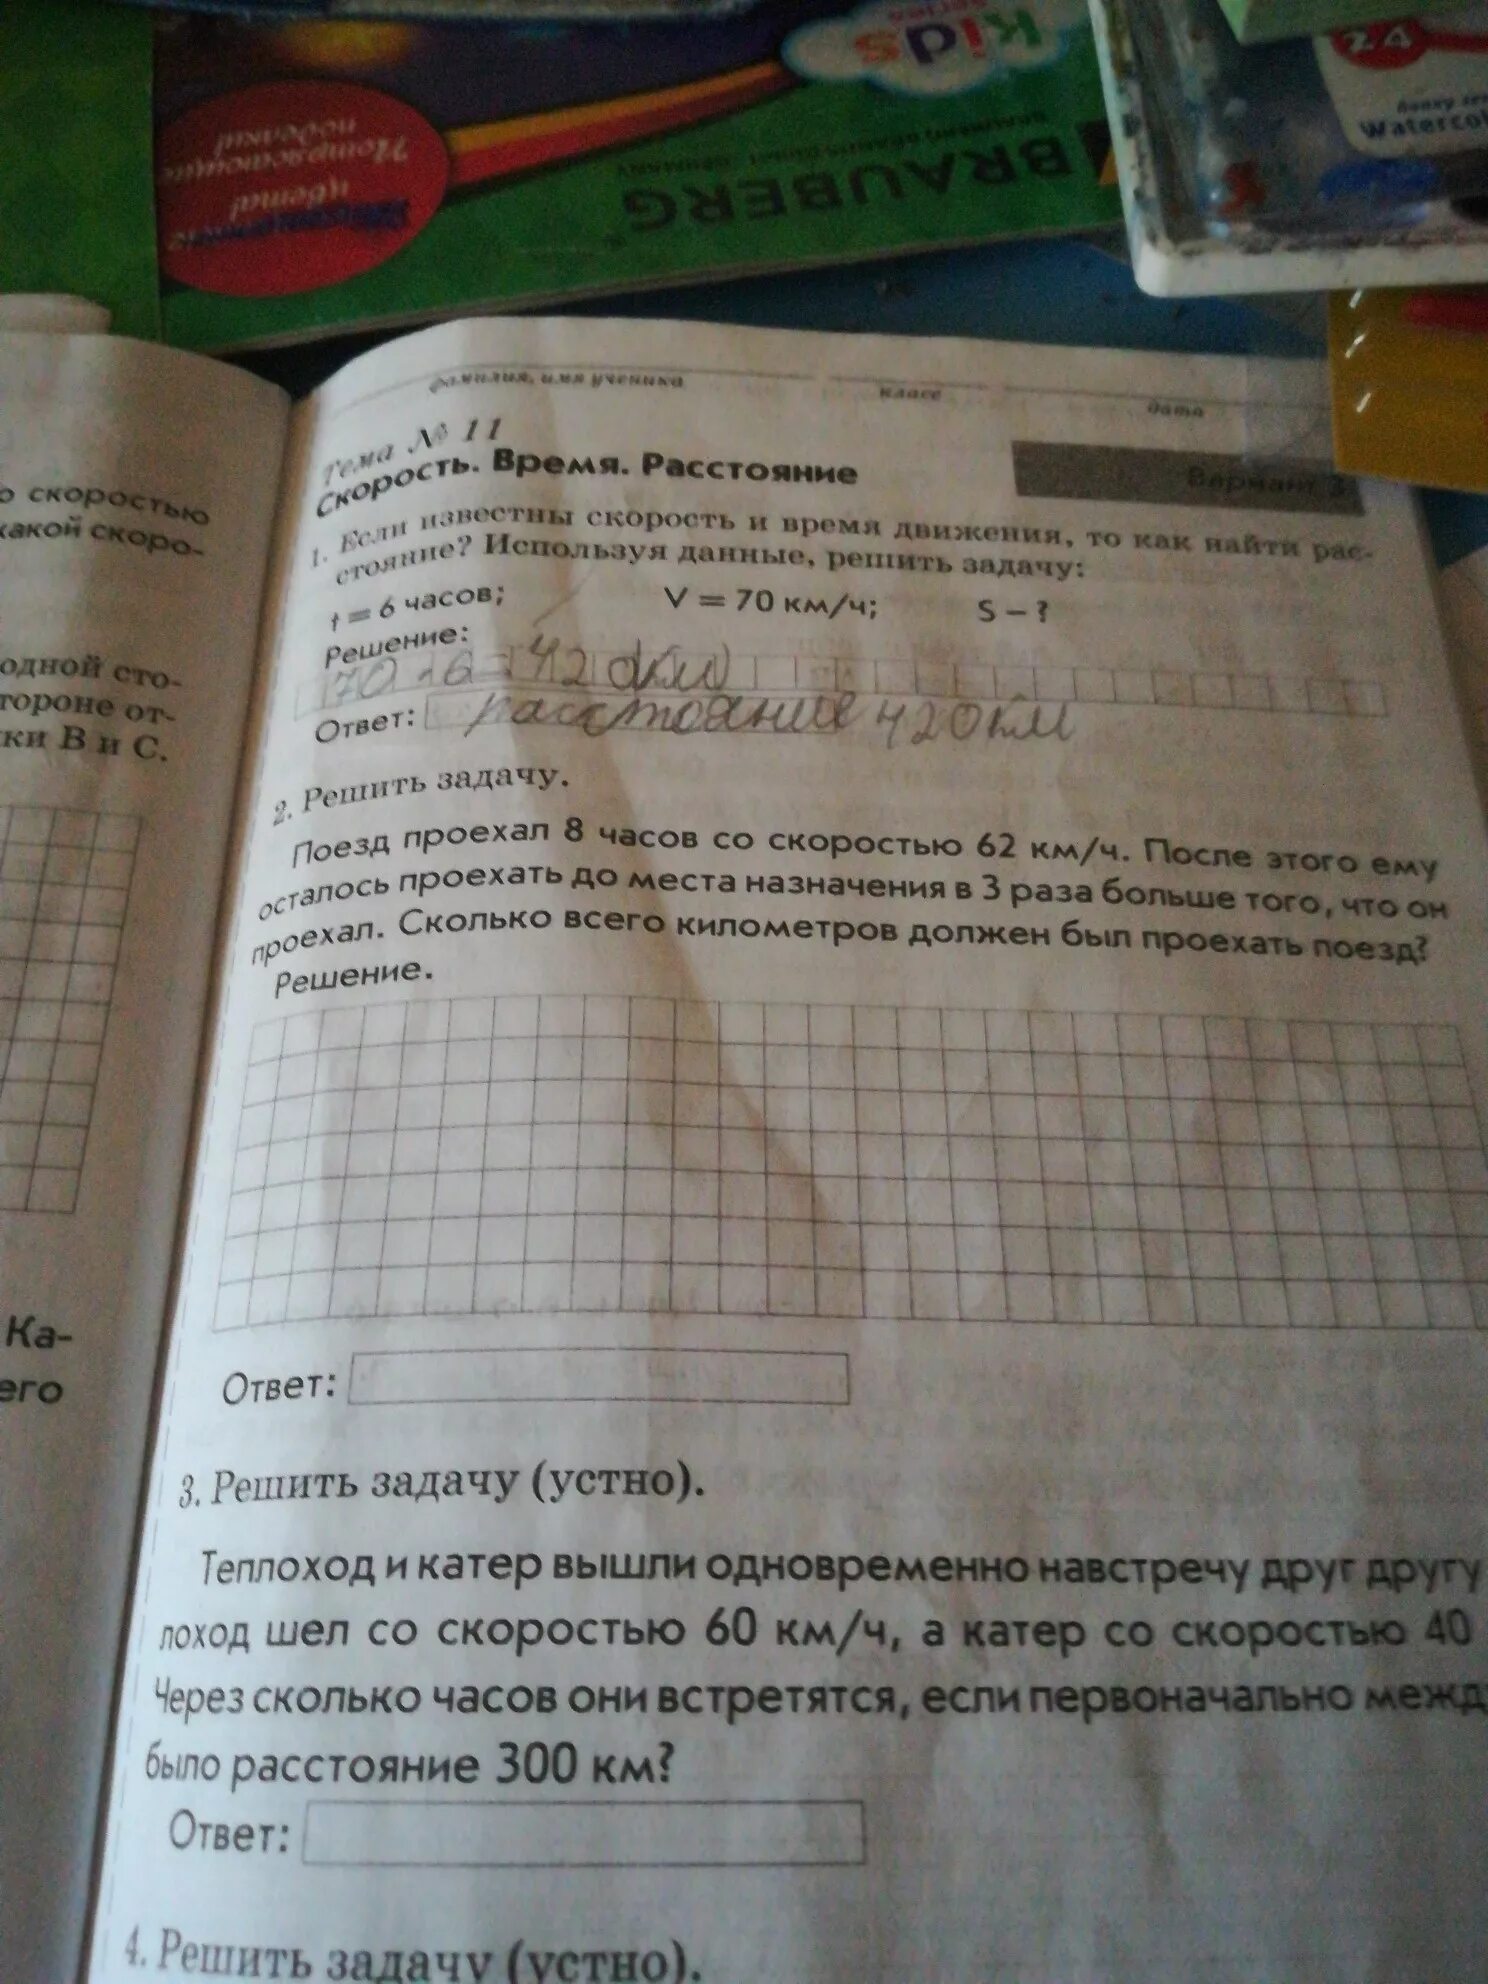 kids
series
BRAUBERG
24
Watercol
Потрясающие
цвета!
поделки!
фамилия, имя ученика
класс
дата
Тема № 11
Скорость. Время. Расстояние
Вариант 3
1. Если известны скорость и время движения, то как найти рас-
стояние? Используя данные, решить задачу:
t = 6 часов; V = 70 км/ч; S – ?
Решение:
70 · 6 = 420км
Ответ: расстояние 420км
2. Решить задачу.
Поезд проехал 8 часов со скоростью 62 км/ч. После этого ему
осталось проехать до места назначения в 3 раза больше того, что он
проехал. Сколько всего километров должен был проехать поезд?
Решение.
Ответ:
3. Решить задачу (устно).
Теплоход и катер вышли одновременно навстречу друг другу
лоход шел со скоростью 60 км/ч, а катер со скоростью 40
Через сколько часов они встретятся, если первоначально межд
было расстояние 300 км?
Ответ:
4. Решить задачу (устно).
о скоростью
какой скоро-
одной сто-
тороне от-
ки В и С.
Ка-
его